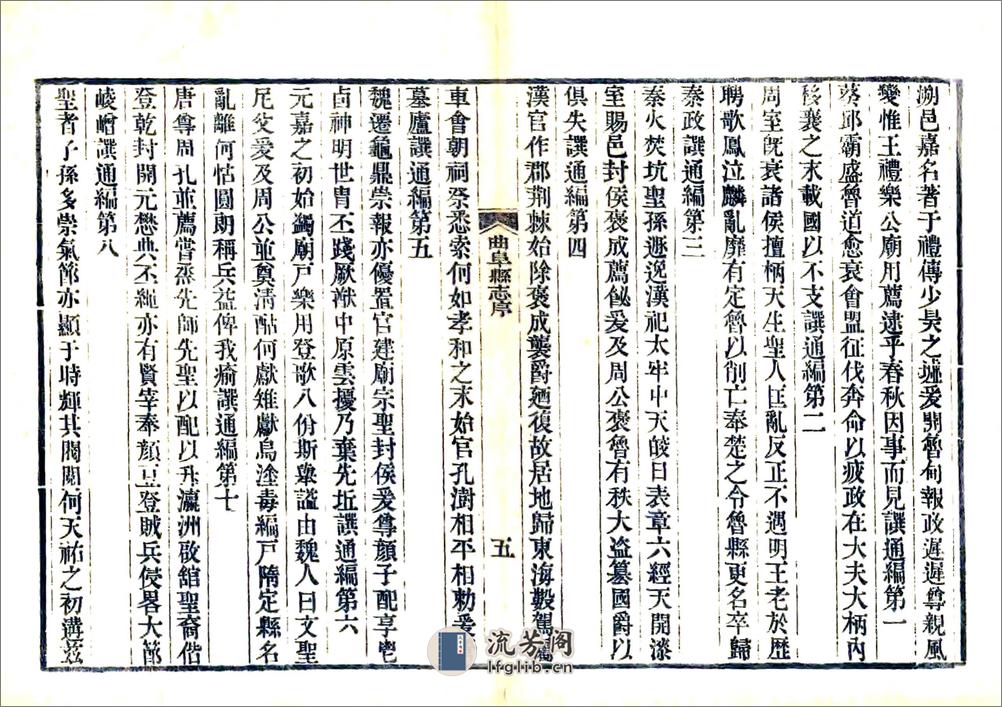 溯邑嘉名著于禮傳少昊之墟爰開魯甸報政遲遲尊親風
變惟王禮樂公廟用薦逮乎春秋因事而見譔通編第一
葵邱霸盛魯道愈衰會盟征伐奔命以疲政在大夫大柄內
移襄之末載國以不支譔通編第二
周室旣衰諸侯擅柄天生聖人匡亂反正不遇明王老於歷
聘歌鳳泣麟亂靡有定魯以削亡奉楚之令魯縣更名卒歸
秦政譔通編第三
秦火焚坑聖孫遜逸漢祀太牢中天皦日表章六經天開漆
室賜邑封侯褒成薦飶爰及周公褒魯有秩大盜簒國爵以
俱失譔通編第四
漢官作郡荆棘始除褒成襲爵廼復故居地歸東海數駕鸞
車會朝祠祭悉索何如孝和之末始官孔澍相平相勅爰
墓廬譔通編第五
魏遷龜鼎崇報亦優置官建廟宗聖封侯爰尊顏子配享鬯
卣神明世冑丕踐厥猷中原雲擾乃棄先坵譔通編第六
元嘉之初始蠲廟戸樂用登歌八佾斯舉謚由魏人曰文聖
尼父爰及周公並奠淸酤何獻雉獻鳥塗毒編戸隋定縣名
亂離何怙圓朗稱兵益俾我瘉譔通編第七
唐尊周孔並薦嘗烝先師先聖以配以升瀛洲啟舘聖裔偕
登乾封開元懋典丕繩亦有賢宰奉顏豆登賊兵侵畧大節
崚嶒譔通編第八
聖者子孫多崇氣節亦顯于時輝其閥閱何天祐之初溝茲
曲阜縣志序
五
流芳閣
lfglib.cn